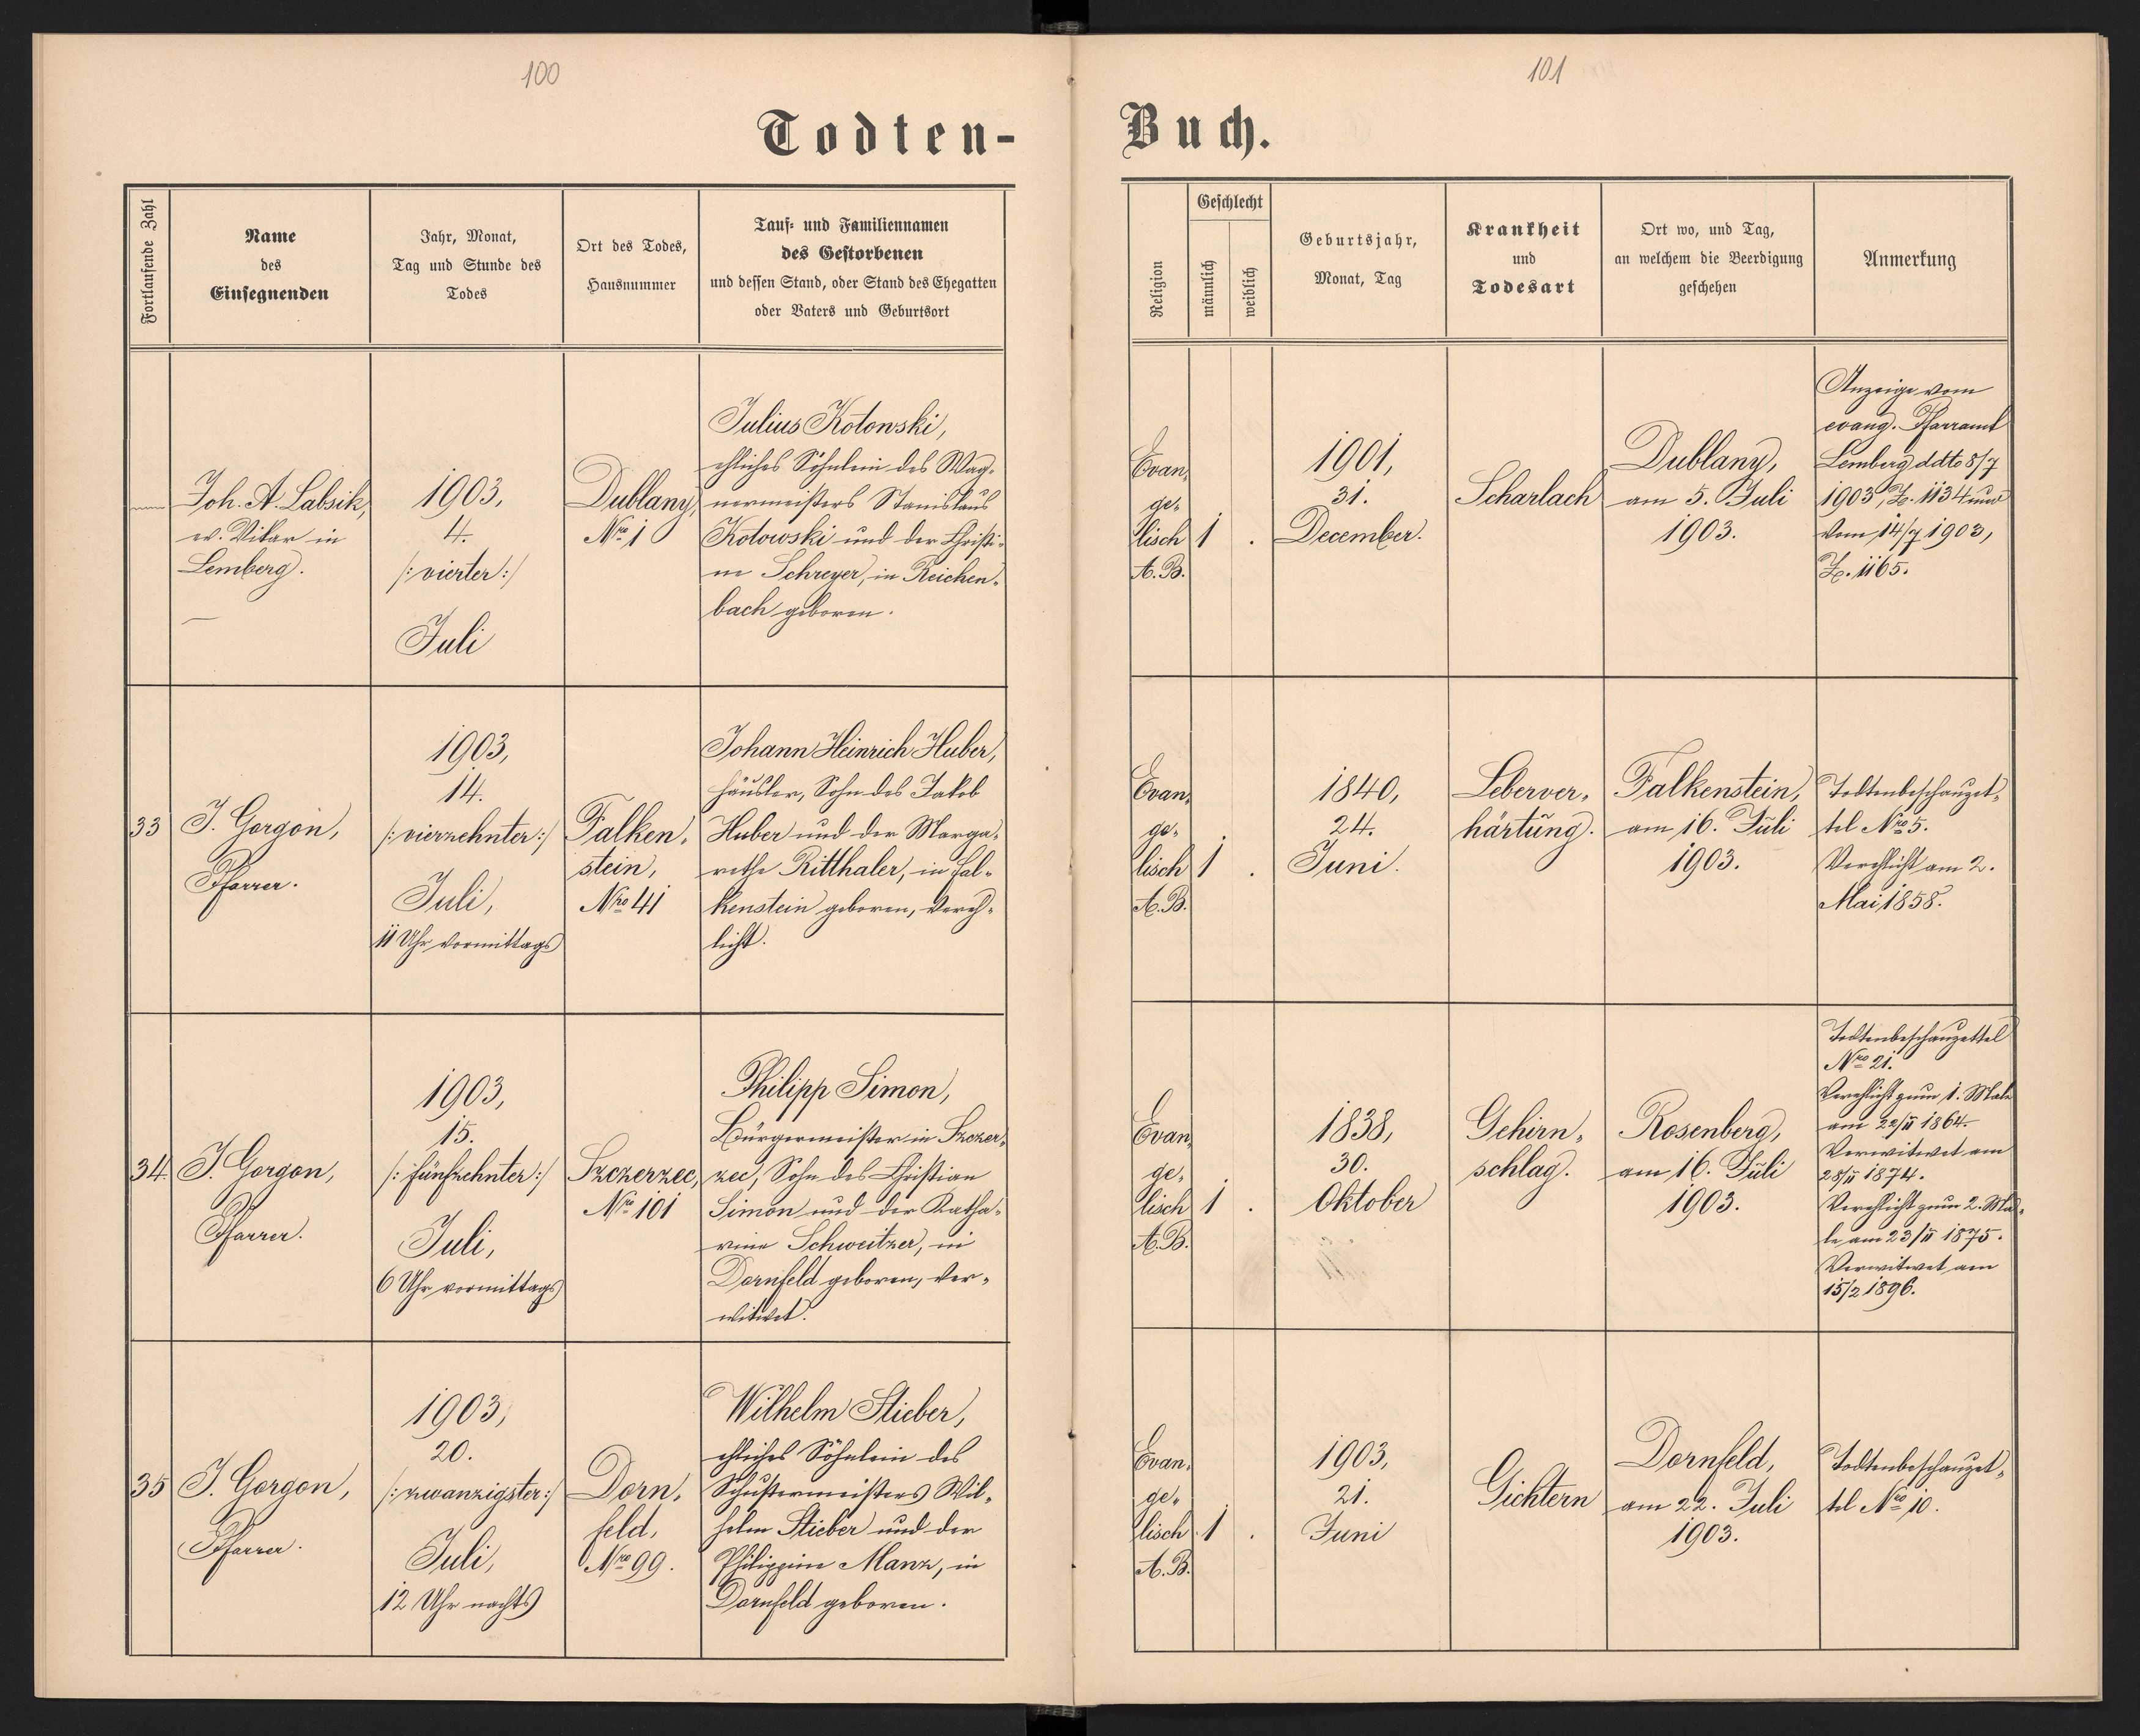 100
Todten-
Fortlaufende Zahl
Name
des
Einsegnenden
Jahr, Monat,
Tag und Stunde des
Todes
Ort des Todes,
Hausnummer
Tauf- und Familiennamen
des Gestorbenen
und dessen Stand, oder Stand des Ehegatten
oder Vaters und Geburtsort
Joh. A. Labsik,
ev. Vikar in
Lemberg.
1903,
4.
/: vierter :/
Juli
Dublany,
Nro 1
Julius Kotowski,
ehliches Söhnlein des Wag-
nermeisters Stanislaus
Kotowski und der Christi-
ne Schreyer, in Reichen-
bach geboren.
33
J. Gorgon,
Pfarrer.
1903,
14.
/: vierzehnter :/
Juli,
11 Uhr vormittags
Falken-
stein,
Nro 41
Johann Heinrich Huber,
Häusler, Sohn des Jakob
Huber und der Marga-
rethe Ritthaler, in Fal-
kenstein geboren, Vereh-
licht.
34.
J. Gorgon,
Pfarrer.
1903,
15.
/: fünfzehnter :/
Juli,
6 Uhr vormittags
Szczerzec,
Nro 101
Philipp Simon,
Bürgermeister in Szczer-
zec, Sohn des Christian
Simon und der Katha-
rina Schweitzer, in
Dornfeld geboren, Ver-
witwet.
35
J. Gorgon,
Pfarrer.
1903,
20.
/: zwanzigster :/
Juli,
12 Uhr nachts
Dorn-
feld,
Nro 99.
Wilhelm Stieber,
ehliches Söhnlein des
Schustermeisters Wil-
helm Stieber und der
Philippine Manz, in
Dornfeld geboren.
101
Buch.
Religion
Geschlecht
männlich
weiblich
Geburtsjahr,
Monat, Tag
Krankheit
und
Todesart
Ort wo, und Tag,
an welchem die Beerdigung
geschehen
Anmerkung
Evan-
ge-
lisch
A. B.
1 .
1901,
31.
December.
Scharlach
Dublany,
am 5. Juli
1903.
Anzeige vom
evang. Pfarramt
Lemberg ddto 8/7
1903, Z. 1134 und
vom 14/7 1903,
Z. 1165.
Evan-
ge-
lisch
A. B.
1 .
1840,
24.
Juni.
Leberver-
härtung.
Falkenstein,
am 16. Juli
1903.
Todtenbeschauzet-
tel Nro 5.
Verehlicht am 2.
Mai 1858.
Evan-
ge-
lisch
A. B.
1 .
1838,
30.
Oktober
Gehirn-
schlag.
Rosenberg,
am 16. Juli
1903.
Todtenbeschauzettel
Nro 21.
Verehlicht zum 1. Male
am 22/II 1864.
Verwitwet am
28/II 1874.
Verehlicht zum 2. Ma-
le am 23/II 1875.
Verwitwet am
15/2 1896.
Evan-
ge-
lisch
A. B.
1 .
1903,
21.
Juni
Gichtern
Dornfeld,
am 22. Juli
1903.
Todtenbeschauzet-
tel Nro 10.